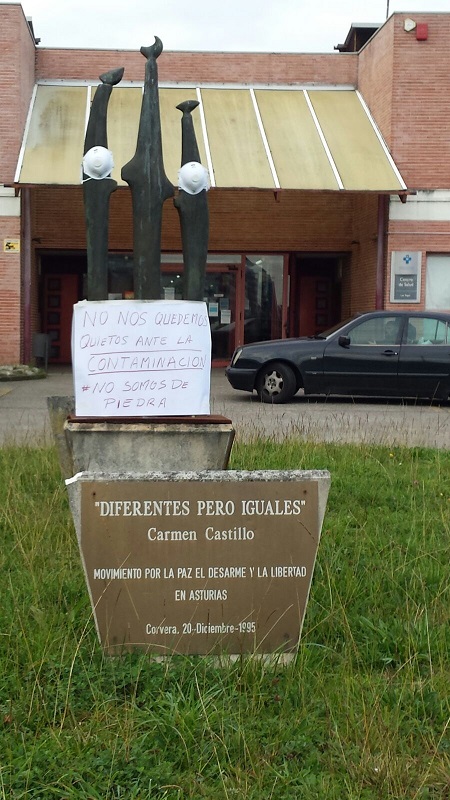 NO NOS QUEDEMOS
QUIETOS ANTE LA
CONTAMINACION
#NO SOMOS DE
PIEDRA
"DIFERENTES PERO IGUALES"
Carmen Castillo
MOVIMIENTO POR LA PAZ EL DESARME Y LA LIBERTAD
EN ASTURIAS
Corvera, 20-Diciembre-1995
Centro
de Salud